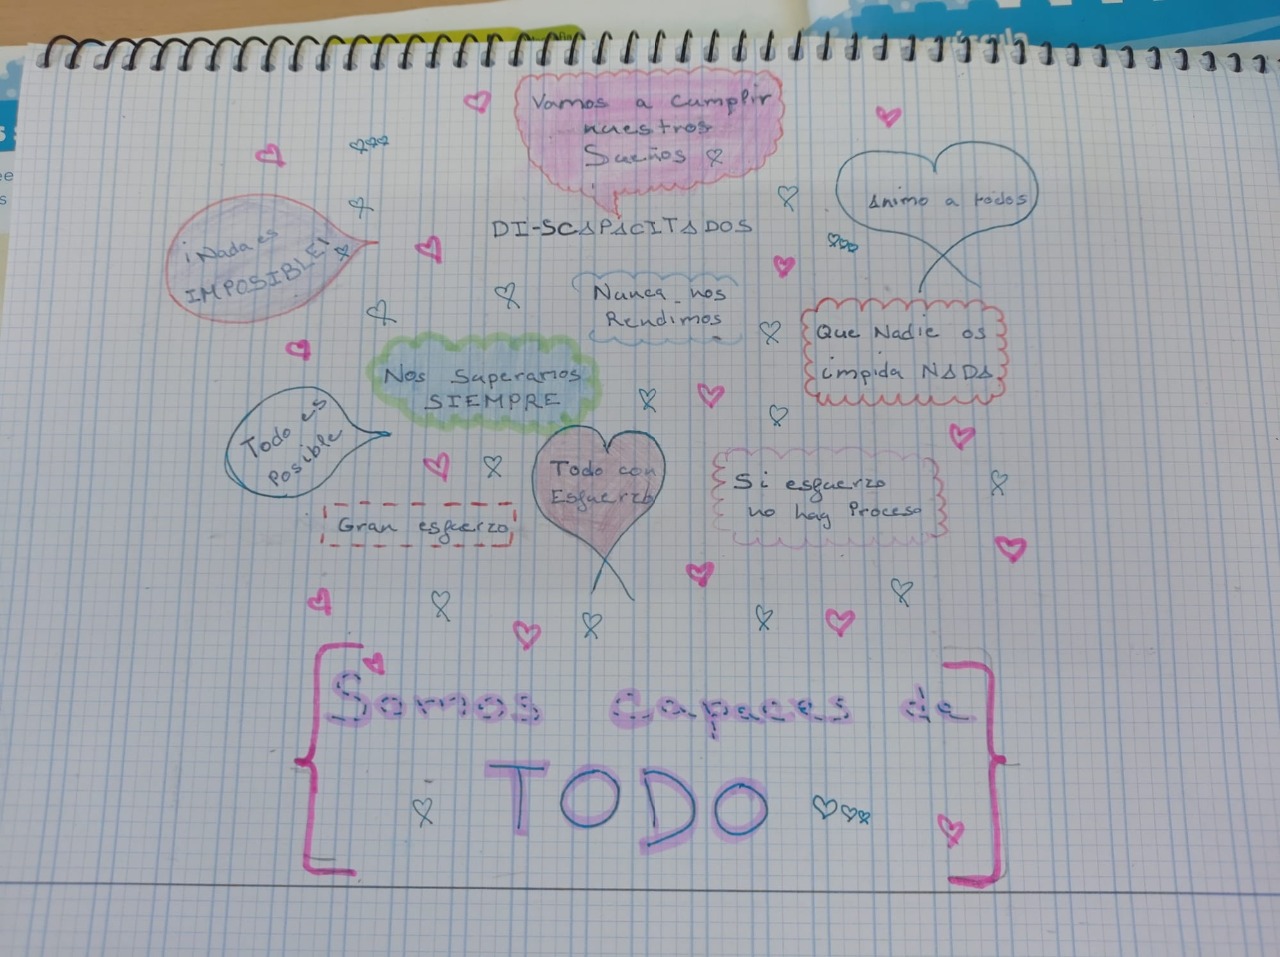 Vamos a cumplir
nuestros
Sueños
¡Nada es
IMPOSIBLE!
Animo a todos
DI-SCAPACITADOS
Nunca nos
Rendimos
Que Nadie os
impida NADA
Nos Superamos
SIEMPRE
Todo es
Posible
Todo con
Esfuerzo
Si esfuerzo
no hay Proceso
Gran esfuerzo
Somos capaces de
TODO